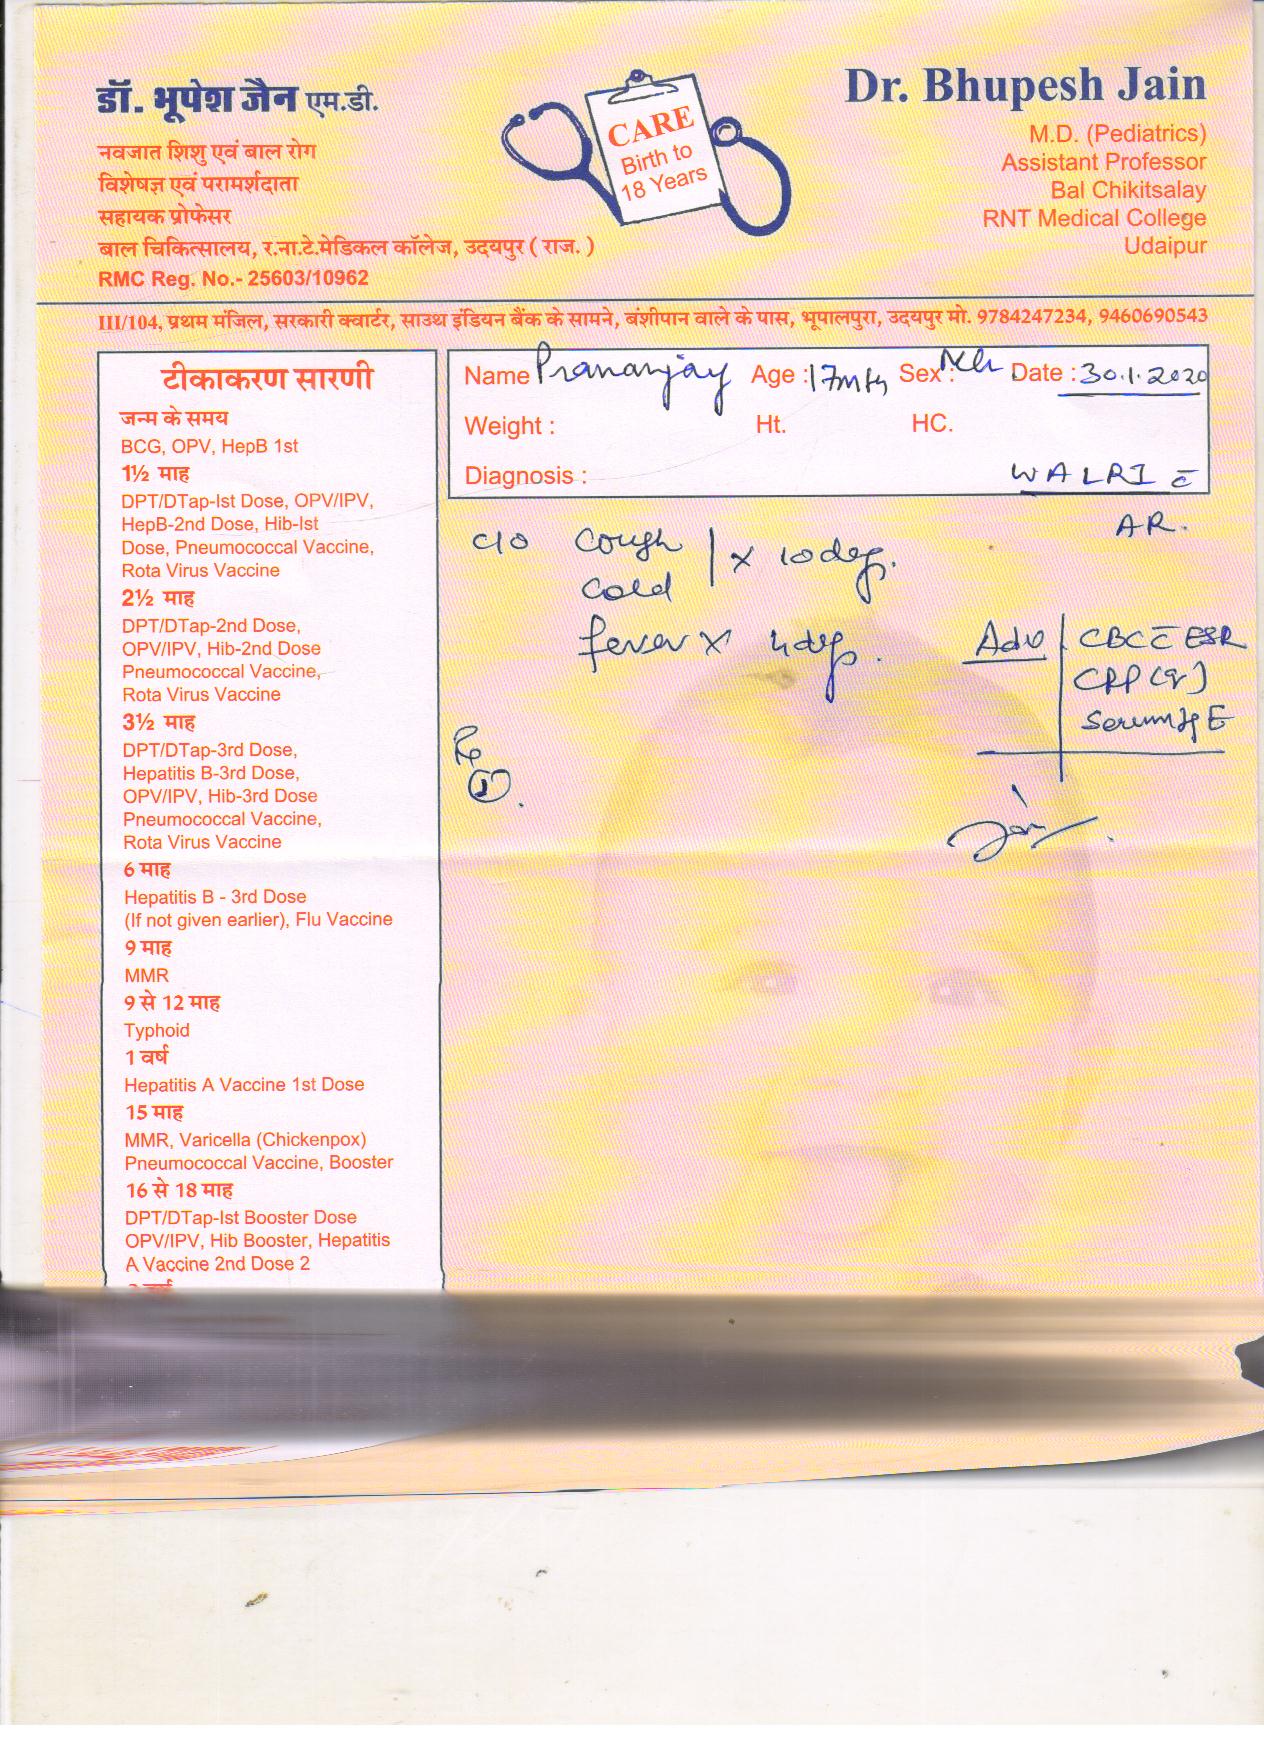 डॉ. भूपेश जैन एम.डी.
नवजात शिशु एवं बाल रोग
विशेषज्ञ एवं परामर्शदाता
सहायक प्रोफेसर
बाल चिकित्सालय, र.ना.टे.मेडिकल कॉलेज, उदयपुर ( राज. )
RMC Reg. No.- 25603/10962
CARE
Birth to
18 Years
Dr. Bhupesh Jain
M.D. (Pediatrics)
Assistant Professor
Bal Chikitsalay
RNT Medical College
Udaipur
III/104, प्रथम मंजिल, सरकारी क्वार्टर, साउथ इंडियन बैंक के सामने, बंशीपान वाले के पास, भूपालपुरा, उदयपुर मो. 9784247234, 9460690543
टीकाकरण सारणी
जन्म के समय
BCG, OPV, HepB 1st
1½ माह
DPT/DTap-Ist Dose, OPV/IPV,
HepB-2nd Dose, Hib-Ist
Dose, Pneumococcal Vaccine,
Rota Virus Vaccine
2½ माह
DPT/DTap-2nd Dose,
OPV/IPV, Hib-2nd Dose
Pneumococcal Vaccine,
Rota Virus Vaccine
3½ माह
DPT/DTap-3rd Dose,
Hepatitis B-3rd Dose,
OPV/IPV, Hib-3rd Dose
Pneumococcal Vaccine,
Rota Virus Vaccine
6 माह
Hepatitis B - 3rd Dose
(If not given earlier), Flu Vaccine
9 माह
MMR
9 से 12 माह
Typhoid
1 वर्ष
Hepatitis A Vaccine 1st Dose
15 माह
MMR, Varicella (Chickenpox)
Pneumococcal Vaccine, Booster
16 से 18 माह
DPT/DTap-Ist Booster Dose
OPV/IPV, Hib Booster, Hepatitis
A Vaccine 2nd Dose 2
Name Prananjay Age : 17mth Sex : Mch Date : 30.1.2020
Weight : Ht. HC.
Diagnosis : WALRI c̄
AR.
c/o cough | x 10 days.
cold
fever x 4 days.
Adv | CBC c̄ ESR
CRP (q)
Serum Ig E
Rx
①.
Jain